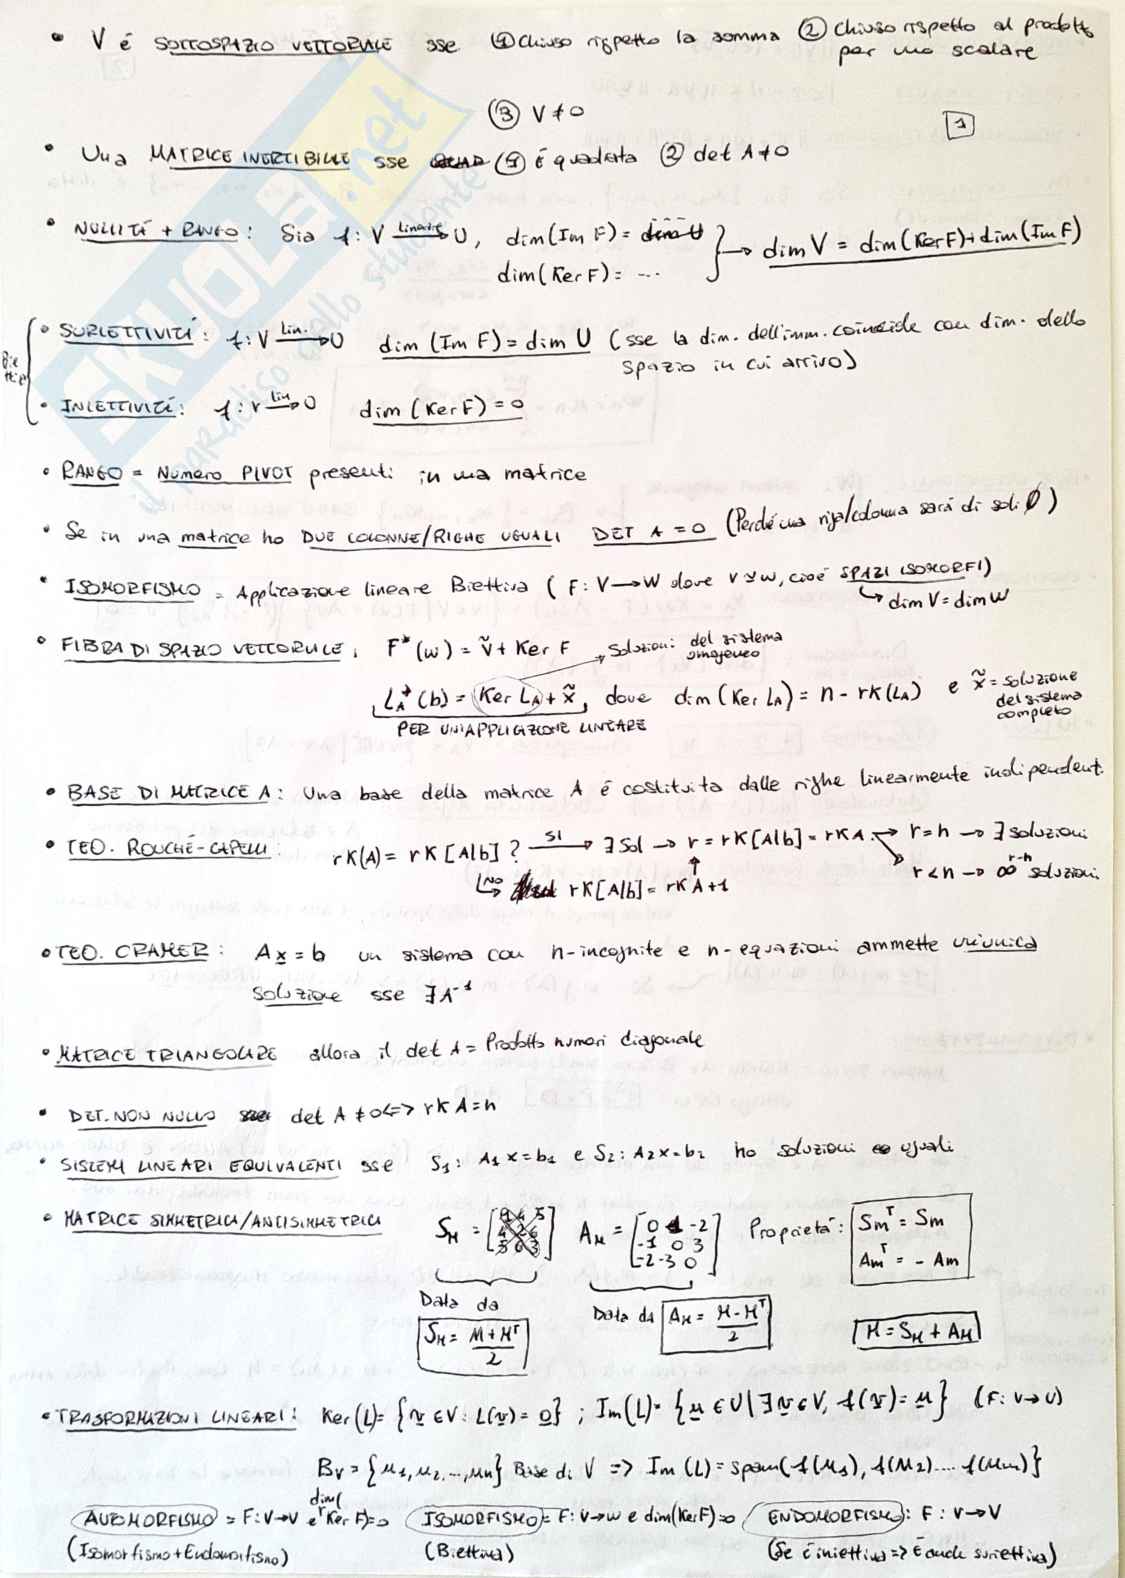 • V é SOTTOSPAZIO VETTORIALE sse ① Chiuso rispetto la somma ② Chiuso rispetto al prodotto
per uno scalare
③ V ≠ 0
1
• Una MATRICE INERTIBILE sse ① É quadrata ② det A ≠ 0
• NULLITÁ + RANGO: Sia f: V Lineare→ U, dim(Im F) = dim U } → dim V = dim(Ker F) + dim(Im F)
dim(Ker F) = ...
• SURIETTIVITÁ: f: V Lin.→ U dim (Im F) = dim U (sse la dim. dell'imm. coincide con dim. dello
spazio in cui arrivo)
Biettiva
• INIETTIVITÁ: f: V Lin→ U dim (Ker F) = 0
• RANGO = Numero PIVOT presenti in una matrice
• Se in una matrice ho DUE COLONNE/RIGHE UGUALI DET A = 0 (Perché una riga/colonna sará di soli 0)
• ISOMORFISMO = Applicazione lineare Biettiva (F: V → W dove V ≃ W, cioé SPAZI ISOMORFI)
↳ dim V = dim W
• FIBRA DI SPAZIO VETTORIALE: F*(w) = ṽ + Ker F → Soluzioni del sistema
omogeneo
L_A*(b) = Ker L_A + x̃, dove dim (Ker L_A) = n - rk(L_A) e x̃ = soluzione
del sistema
completo
PER UN'APPLICAZIONE LINEARE
• BASE DI MATRICE A: Una base della matrice A é costituita dalle righe linearmente indipendent.
• TEO. ROUCHÉ-CAPELLI: rK(A) = rK [A|b] ? SI→ ∃ Sol → r = rK[A|b] = rK A → r = n → ∃ soluzioni
↘ r < n → ∞^(r-n) soluzioni
↳NO→ rK[A|b] = rK A + 1
• TEO. CRAMER: Ax = b un sistema con n-incognite e n-equazioni ammette un'unica
soluzione sse ∃ A⁻¹
• MATRICE TRIANGOLARE allora il det A = Prodotto numeri diagonale
• DET. NON NULLO det A ≠ 0 <=> rK A = n
• SISTEMI LINEARI EQUIVALENTI sse S₁: A₁x = b₁ e S₂: A₂x = b₂ ho soluzioni uguali
• MATRICE SIMMETRICA/ANTISIMMETRICA S_M = [ 4 5 A_M = [ 0 1 -2 Proprietá: Sm^T = Sm
4 2 6 -1 0 3
5 6 3 ] -2 -3 0 ] Am^T = - Am
Data da Data da A_M = (M - M^T)/2
S_M = (M + M^T)/2 M = S_M + A_M
• TRASFORMAZIONI LINEARI: Ker(L) = {v ∈ V : L(v) = 0} ; Im(L) = {u ∈ U | ∃ v ∈ V, f(v) = u} (F: V → U)
B_V = {u₁, u₂, ..., un} Base di V => Im (L) = span(f(u₁), f(u₂) .... f(un)}
AUTOMORFISMO = F: V → V e dim(Ker F) = 0 ISOMORFISMO = F: V → W e dim(Ker F) = 0 ENDOMORFISMO: F: V → V
(Isomorfismo + Endomorfismo) (Biettiva) (Se é iniettiva => É anche suriettiva)
SKUOLA.net
il paradiso dello studente